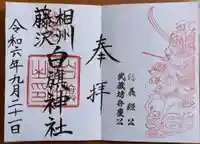 奉拝
相州
藤沢
白旗神社
令和六年九月二十一日
源義経公
武蔵坊弁慶公